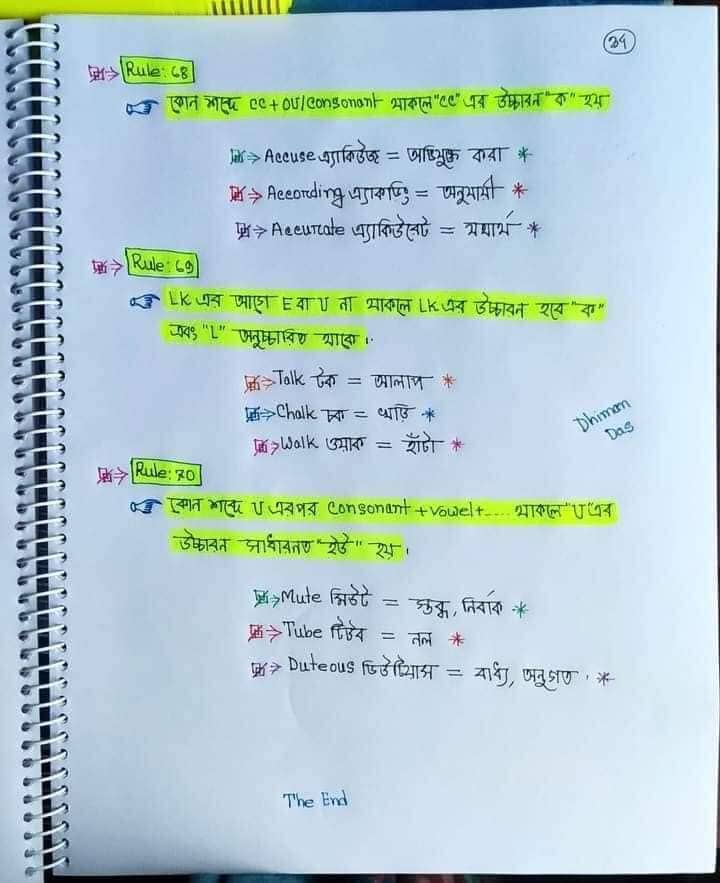 24
Rule: 68
কোন শব্দে cc + OU/consonant থাকলে "cc" এর উচ্চারন "ক" হয়
⇒ Accuse এ্যাকিউজ = অভিযুক্ত করা *
⇒ According এ্যাকর্ডিং = অনুযায়ী *
⇒ Accurate এ্যাকিউরেট = যথার্থ *
Rule: 69
LK এর আগে E বা U না থাকলে LK এর উচ্চারন হবে "ক"
এবং "L" অনুচ্চারিত থাকে।
⇒ Talk টক = আলাপ *
⇒ Chalk চক = খড়ি *
⇒ Walk ওয়াক = হাঁটা *
Dhiman
Das
Rule: 70
কোন শব্দে U এরপর consonant + vowel + .... থাকলে "U" এর
উচ্চারন সাধারনত "ইউ" হয়।
⇒ Mute মিউট = স্তব্ধ, নির্বাক *
⇒ Tube টিউব = নল *
⇒ Duteous ডিউটিয়াস = বাধ্য, অনুগত। *
The End